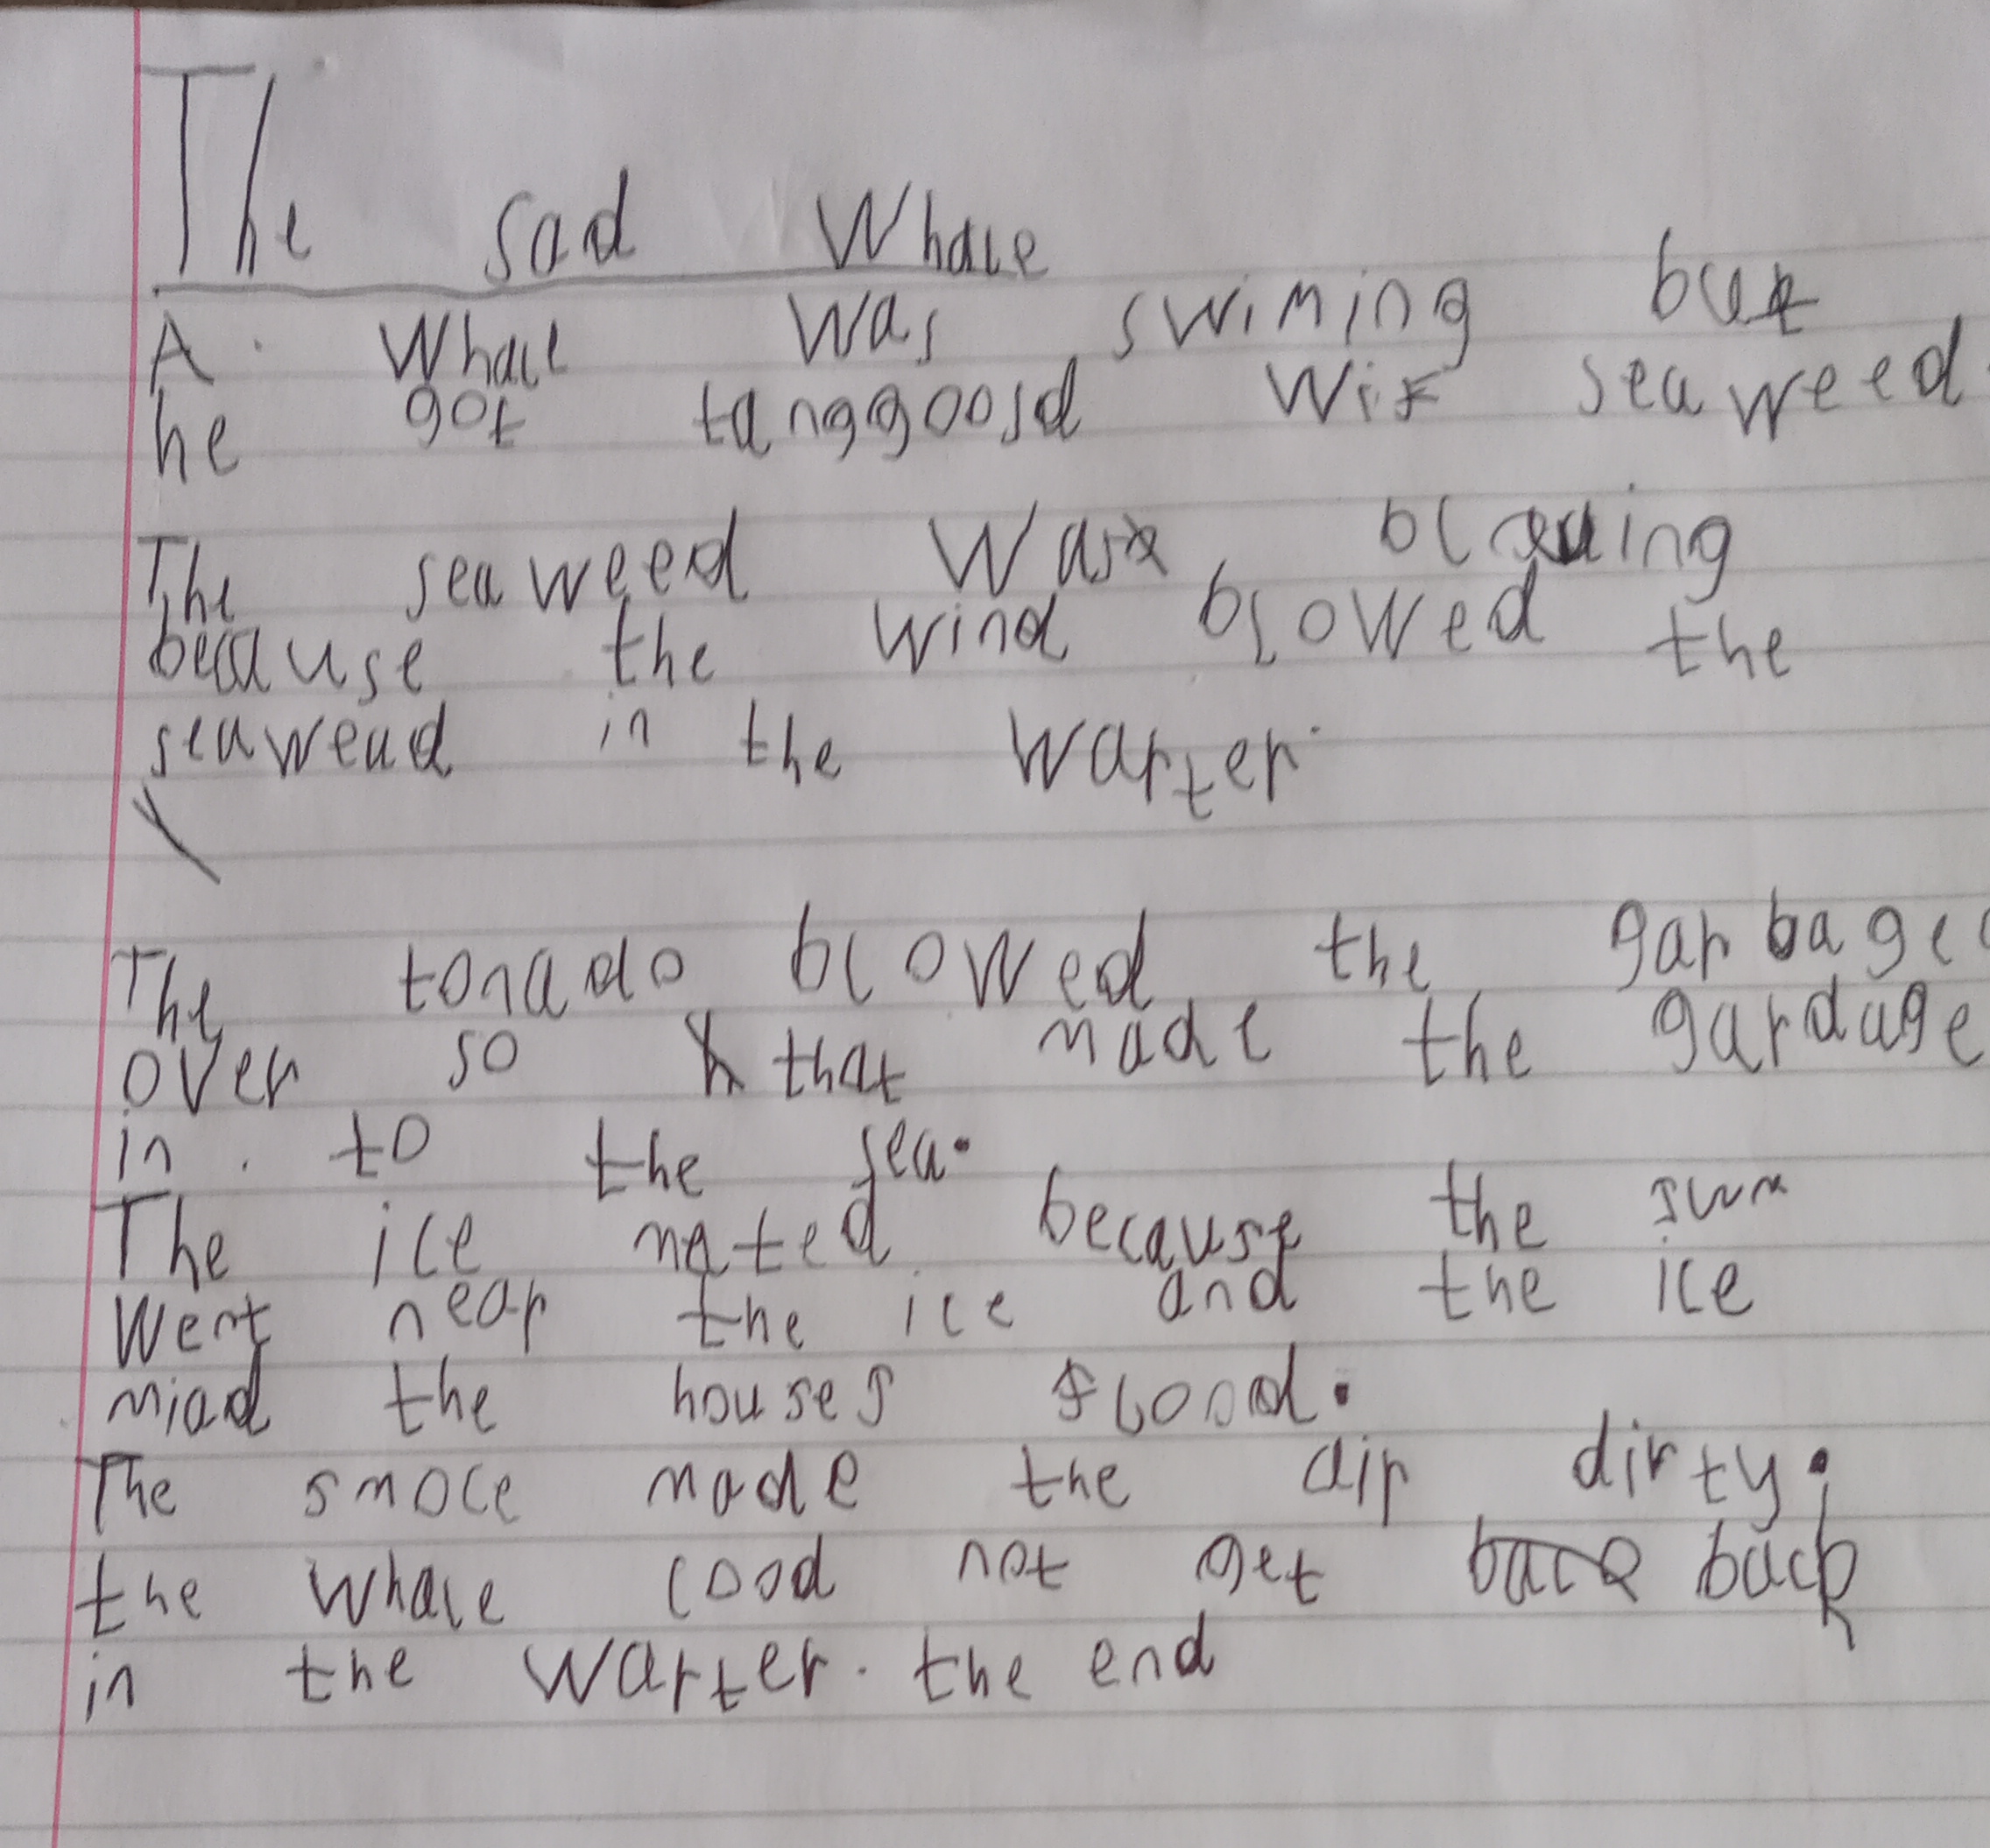 The sad Whale
A Whale was swiming but
he got tanggoosd wif seaweed.
The seaweed was bloing
because the wind blowed the
seawead in the warter.
The tonado blowed the garbage
over so that made the gardage
in to the sea.
The ice mated because the sun
went near the ice and the ice
miad the houses flood.
The smoce made the air dirty.
the whale cood not get back
in the warter. the end